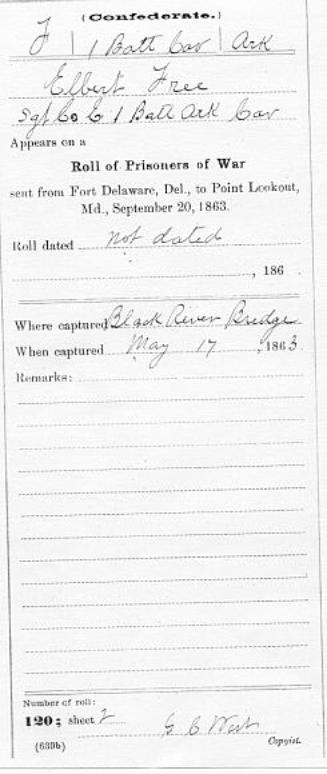 (Confederate.)
F | 1 Batt Cav | Ark
Elbert Free
Sgt Co E 1 Batt Ark Cav
Appears on a
Roll of Prisoners of War
sent from Fort Delaware, Del., to Point Lookout,
Md., September 20, 1863.
Roll dated not dated
, 186 .
Where captured Black River Bridge
When captured May 17, 1863.
Remarks:
Number of roll:
120; sheet 2
G C West
(639b) Copyist.